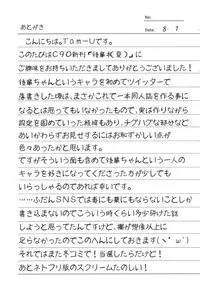 No.
Date: 8・1
あとがき
こんにちは。Tom-Uです。
このたびはC90新刊『往華枝夏』に
ご興味をお持ちいただきましてありがとうございました！
往華ちゃんというキャラを初めてツイッターで
落書きした頃は、まさかこれで一本同人誌を作る事に
なるとは思ってもいなかったもので、実は作りながら
設定を固めていった経緯もあり、チグハグな部分など
あいかわらずお見せするにはお恥ずかしい点が
色々あったかと思います。
ですがそういう面も含めて往華ちゃんという一人の
キャラを好きになってくださった方が少しでも
いらっしゃるのであれば幸いです。
……ふだんSNSでは毒にも薬にもならないことしか
書き込まないのでこういう時くらい多少砕けた話
しようと思ってたんですけど、欄が想像以上に
足らなかったのでこのへんにしておきます(´･ω･`)
それではまた冬コミで！当選したらだけど！
あとネトフリ版のスクリームたのしい！